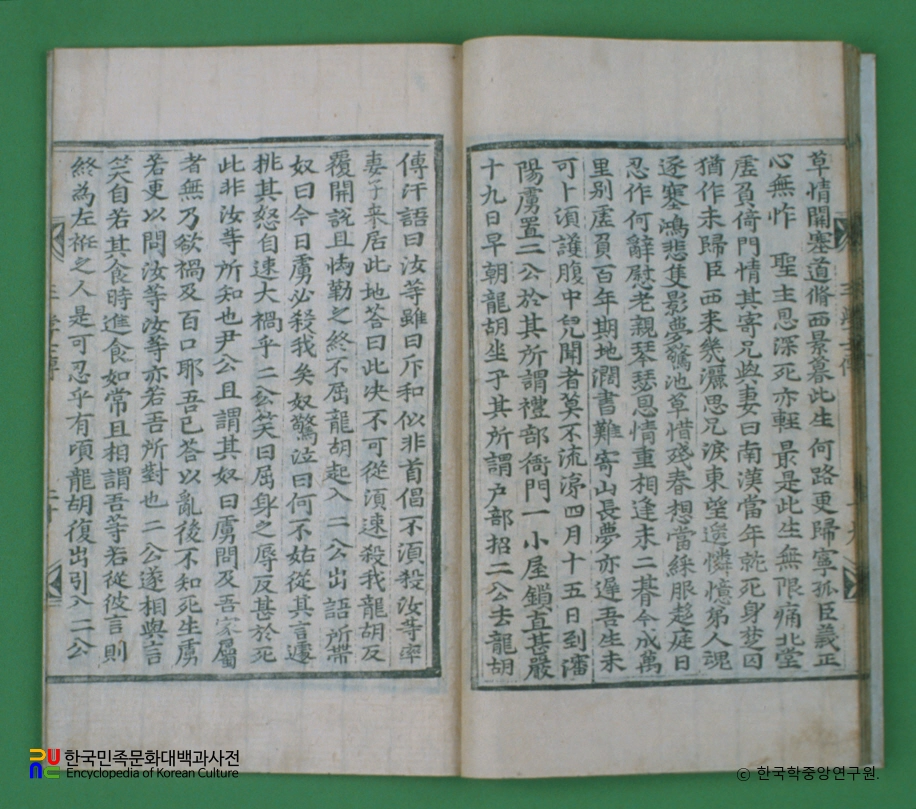 草情關塞道脩西景暮此生何路更歸寧孤臣義正
心無怍 聖主恩深死亦輕最是此生無限痛北堂
虛負倚門情其寄兄與妻曰南漢當年就死身楚囚
猶作未歸臣西來幾灑思兄淚東望遙憐憶弟人魂
逐塞鴻悲隻影夢驚池草惜殘春想當綵服趨庭日
忍作何辭慰老親琴瑟恩情重相逢未二朞今成萬
里別虛負百年期地濶書難寄山長夢亦遲吾生未
可卜須護腹中兒聞者莫不流涕四月十五日到瀋
陽虜置二公於其所謂禮部衙門一小屋鎖直甚嚴
十九日早朝龍胡坐于其所謂户部招二公去龍胡
三學士傳
十九
傳汗語曰汝等雖曰斥和似非首倡不湏殺汝等率
妻子来居此地答曰此决不可從湏速殺我龍胡反
覆開說且㤠勤之終不屈龍胡起入二公出語所帶
奴曰今日虜必殺我矣奴驚泣曰何不姑從其言遽
挑其怒自速大禍乎二公笑曰屈身之辱反甚於死
此非汝等所知也尹公且謂其奴曰虜問及吾家屬
者無乃欲禍及百口耶吾已答以亂後不知死生虜
若更以問汝等汝等亦若吾所對也二公遂相與言
笑自若其食時進食如常且相謂吾等若從彼言則
終為左袵之人是可忍乎有頃龍胡復出引入二公
三學士傳
二十
한국민족문화대백과사전
Encyclopedia of Korean Culture
ⓒ 한국학중앙연구원.